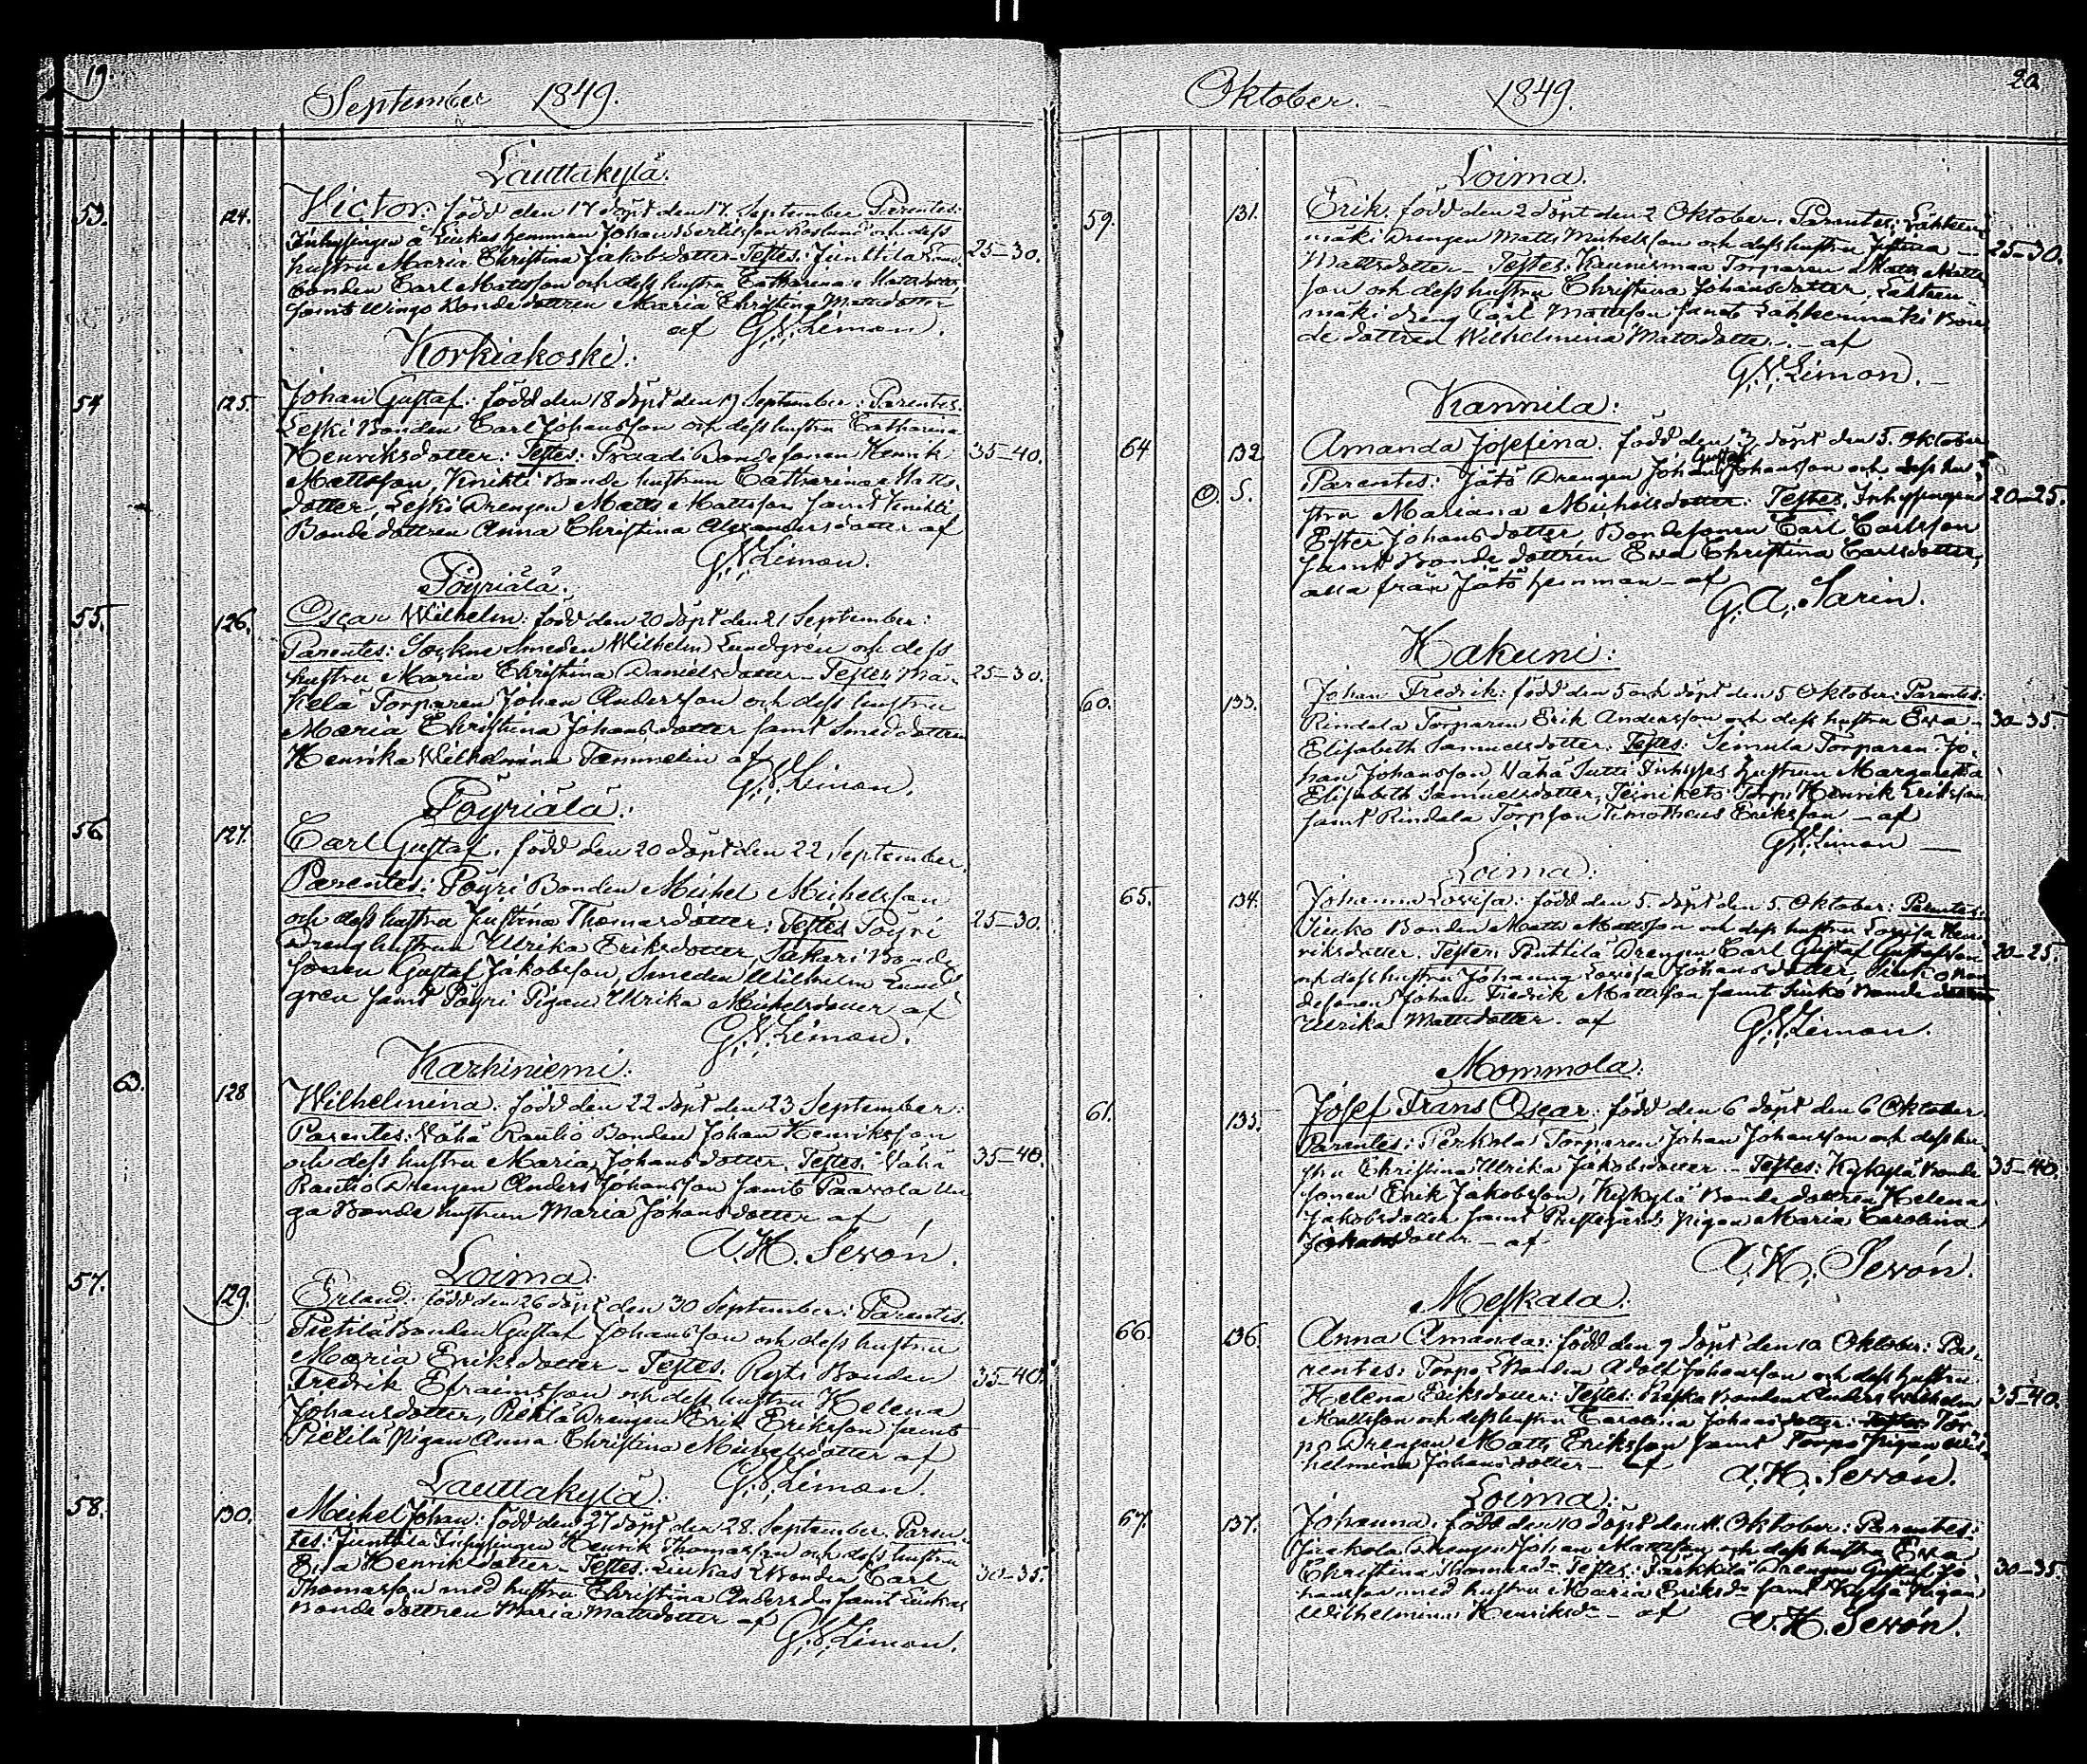 19.
September 1849.
Lauttakylä.
53. 124. Victor: född den 17 döpt den 17. September Parentes:
Inhysingen å Liukas hemman Johan Bertilsson Roslund och dess
hustru Maria Christina Jakobsdotter Testes: Junttila 25-30.
bonden Carl Mattsson och dess hustru Catharina Mattsdotter,
samt Wingo Bondedottren Maria Christina Mattsdotter
af G.N. Limon.
Korkiakoski:
54 125. Johan Gustaf: född den 18 döpt den 19 September: Parentes.
Leski Bonden Carl Johansson och dess hustru Catharina
Henriksdotter: Testes: Praadi Bondesonen Henrik 35-40.
Mattsson, Knihti Bonde hustrun Catharina Matts.
dotter, Leski Drengen Matts Mattsson samt Knihti
Bonde dottren Anna Christina Alexandersdotter af
G.N. Limon.
Pöyriälä.
55. 126. Oscar Wilhelm: född den 20 döpt den 21 September:
Parentes: Sockne Smeden Wilhelm Lundgren och dess
hustru Maria Christina Danielsdotter - Testes Mä- 25-30.
kelä Torparen Johan Andersson och dess hustru
Maria Christina Johansdotter samt Smeddottren
Henrika Wilhelmina Tammelin af
G.N. Limon.
Pöyriälä:
56 127. Carl Gustaf. född den 20 döpt den 22 September.
Parentes: Pöyri Bonden Michel Michelsson
och dess hustru Justina Thomasdotter: Testes Pöyri 25-30.
Dreng hustrun Ulrika Eriksdotter, Sakari Bonde
sonen Gustaf Jakobsson, Smeden Wilhelm Lund
gren samt Pöyri Pigan Ulrika Michelsdotter af
G.N. Limon.
Karhiniemi:
63. 128 Wilhelmina: född den 22 döpt den 23 September:
Parentes: Vähä Rautio Bonden Johan Henriksson
och dess hustru Maria Johansdotter. Testes. Vähä 35-40.
Rautio Drengen Anders Johansson samt Paavola Un
ga Bonde hustrun Maria Johansdotter af
A.H. Sevón.
Loima:
57. 129. Erland: född den 26 döpt den 30 September: Parentes.
Pietilä Bonden Gustaf Johansson och dess hustru
Maria Eriksdotter - Testes. Ryti Bonden 35-40.
Fredrik Efraimsson och dess hustru Helena
Johansdotter, Pietilä Drengen Erik Eriksson samt
Pietilä Pigan Anna Christina Michelsdotter af
G.N. Limon.
Lauttakylä:
58. 130. Michel Johan: född den 27 döpt den 28. September. Paren-
tes: Junttila Inhysingen Henrik Thomasson och dess hustru
Eva Henriksdotter - Testes: Liukas Bonden Carl 30-35.
Thomasson med hustru Christina Andersdr samt Liukas
Bonde dottren Maria Mattsdotter af
G.N. Limon.
20
Oktober. - 1849.
Loima.
59. 131. Erik. född den 2 döpt den 2 Oktober. Parentes: Lähteen-
mäki Drengen Matts Michelsson och dess hustru Justina 25-30.
Mattsdotter - Testes: Kaunismaa Torparen Matts Matts
son och dess hustru Christina Johansdotter, Lähteen-
mäki dreng Carl Mattsson samt Lähteenmäki Bon
de dottren Wilhelmina Mattsdotter - af
G.N. Limon. -
Kannila:
64 132 Amanda Josefina. född den 3. döpt den 5. Oktober
Gustaf
O. 5. Parentes: Jätö Drengen Johan Johansson och dess hu
stru Mariana Michelsdotter: Testes, Inhysingen 20-25.
Ester Johansdotter, Bondesonen Carl Carlsson
samt Bonde dottren Eva Christina Carlsdotter,
alla från Jätö hemman - af
G.A. Sarin.
Hakuni:
60. 133. Johan Fredrik: född den 5 och döpt den 5 Oktober: Parentes:
Rindala Torparen Erik Andersson och dess hustru Eva 30-35
Elisabeth Samuelsdotter: Testes: Seimula Torparen Jo-
han Johansson, Vähä Sutti Inhyses hustrun Margaretha
Elisabeth Samuelsdotter, Torp. Henrik Eriksson
samt Rindala Torpson Timotheus Eriksson - af
G.N. Limon -
Loima:
65. 134. Johanna Lovisa: född den 5. döpt den 5. Oktober: Parentes:
Sinko Bonden Matts Mattsson och dess hustru Lovisa Hen-
riksdotter. Testes: Penttilä Drengen Carl Gustaf Gustafsson 20-25.
och dess hustru Johanna Lovisa Johansdotter, Sinko Bon
desonen Johan Fredrik Mattsson samt Sinko Bonde dottren
Ulrika Mattsdotter. af G.N. Limon.
Mommola:
61. 135. Josef Frans Oscar: född den 6 döpt den 6 Oktober.
Parentes: Perkola Torparen Johan Johansson och dess hu-
stru Christina Ulrika Jakobsdotter - Testes: Kyläpä Bonde 35-40.
sonen Erik Jakobsson, Bonde dottren Helena
Jakobsdotter samt Prestegårds pigan Maria Carolina
Johansdotter - af
A.H. Sevón.
Meskala:
66. 136 Anna Amanda: född den 9 döpt den 10 Oktober: Pa-
rentes: Torpo Bonden Adolf Johansson och dess hustru
Helena Eriksdotter: Testes: Bonden Anders Wilhelm 35-40.
Mattsson och dess hustru Carolina Johansdotter: Tor
po Drengen Matts Eriksson samt Torpo Pigan Wil-
helmina Johansdotter - af A.H. Sevón.
Loima:
67. 137. Johanna. född den 10 döpt den 11. Oktober: Parentes:
Jaakola Drengen Johan Mattsson och dess hustru Eva
Christina Thomasdr Testes: Drengen Gustaf Jo- 30-35.
hansson med hustru Maria Eriksdr samt Pigan
Wilhelmina Henriksdr - af A.H. Sevón.